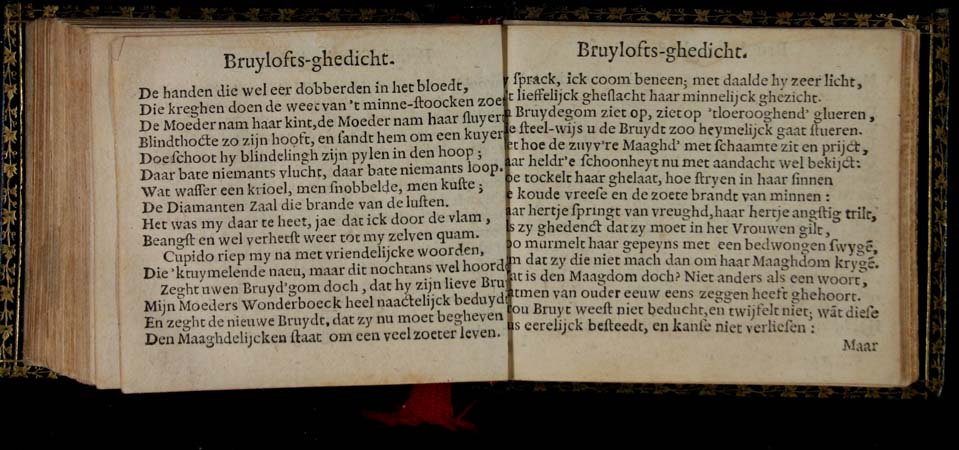 Bruylofts-ghedicht.
De handen die wel eer dobberden in het bloedt,
Die kreghen doen de weet van 't minne-ſtoocken
De Moeder nam haar kint, de Moeder nam haar ſluyer
Blindthocte zo zijn hooft, en ſandt hem om een kuyer
Doe ſchoot hy blindelingh zijn pylen in den hoop;
Daar bate niemants vlucht, daar bate niemants loop.
Wat waſſer een krioel, men ſnobbelde, men kuſte;
De Diamanten Zaal die brande van de luſten.
Het was my daar te heet, jae dat ick door de vlam,
Beangſt en wel verheeſt weer tot my zelven quam.
Cupido riep my na met vriendelijcke woorden,
Die 'k tuymelende naeu, maar dit nochtans wel hoord
Zeght uwen Bruyd'gom doch, dat hy zijn lieve
Mijn Moeders Wonderboeck heel naactelijck beduydt
En zeght de nieuwe Bruydt, dat zy nu moet begheven
Den Maaghdelijcken ſtaat om een veel zoeter leven.
Bruylofts-ghedicht.
ſprack, ick coom beneen; met daalde hy zeer licht,
lieffelijck gheſlacht haar minnelijck ghezicht.
Bruydegom ziet op, ziet op 'tloerooghend' glueren,
ſteel-wijs u de Bruydt zoo heymelijck gaat ſtueren.
hoe de zuyv're Maaghd' met ſchaamte zit en prijct,
heldr'e ſchoonheyt nu met aandacht wel bekijct:
tockelt haar ghelaat, hoe ſtryen in haar ſinnen
koude vreeſe en de zoete brandt van minnen:
hertje ſpringt van vreughd, haar hertje angſtig trilt,
zy ghedenct dat zy moet in het Vrouwen gilt,
murmelt haar gepeyns met een bedwongen ſwygẽ,
dat zy die niet mach dan om haar Maaghdom krygẽ.
is den Maagdom doch? Niet anders als een woort,
men van ouder eeuw eens zeggen heeft ghehoort.
Bruyt weeſt niet beducht, en twijfelt niet, wãt dieſe
eerelijck beſteedt, en kanſe niet verlieſen:
Maar